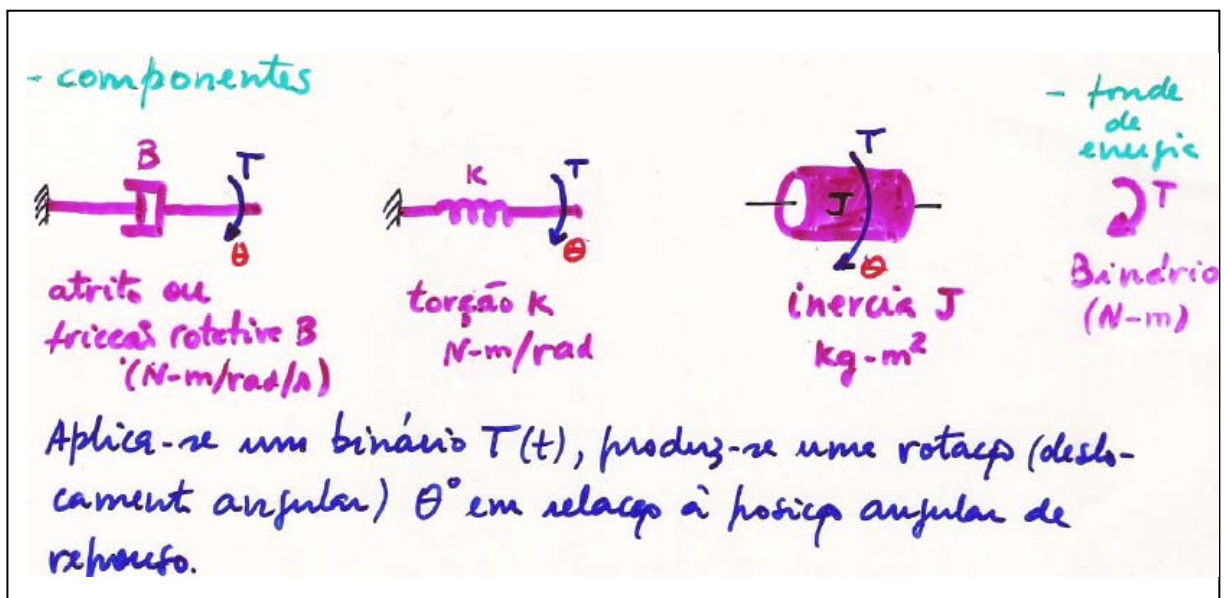 - componentes
- fonte
de
energia
B
T
θ
K
T
θ
T
J
θ
T
atrito ou
fricção rotative B
(N-m/rad/s)
torção K
N-m/rad
inercia J
kg-m²
Binário
(N-m)
Aplica-se um binário T(t), produz-se uma rotação (deslo-
cament. angular) θ° em relação à posição angular de
repouso.